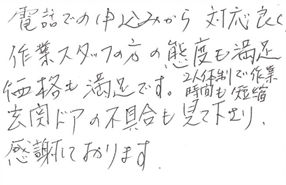 電話での申込みから 対応良く
作業スタッフの方の態度も満足
価格も満足です。2人体制で作業
時間も短縮
玄関ドアの不具合も見て下さり、
感謝しております。